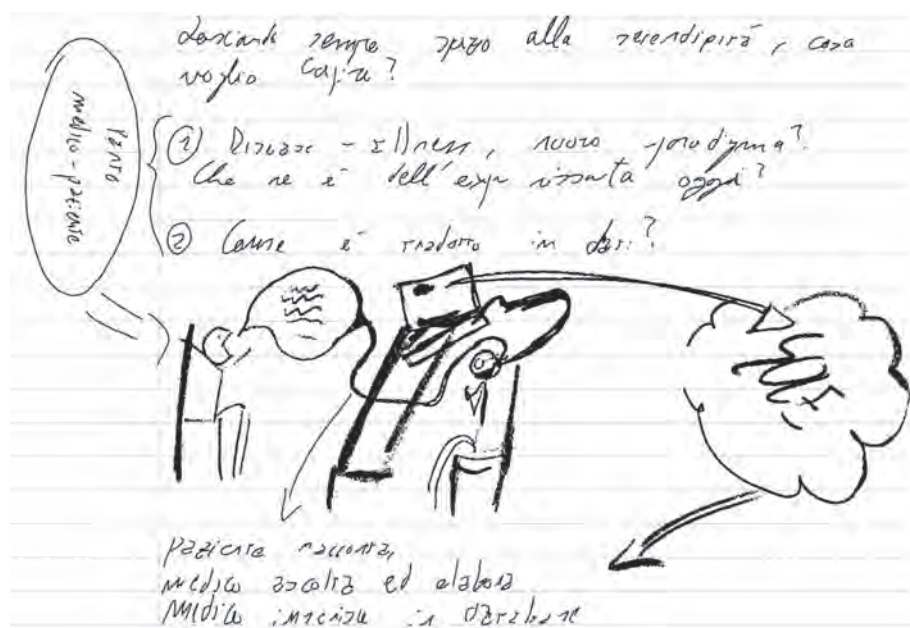 Lasciando sempre spazio alla serendipità, cosa
voglio capire?
Punto
medico-paziente
① Disease - illness, nuovo paradigma?
Che ne è dell'esp vissuta oggi?
② Come è tradotto in dati?
paziente racconta,
medico ascolta ed elabora
medico inserisce in database